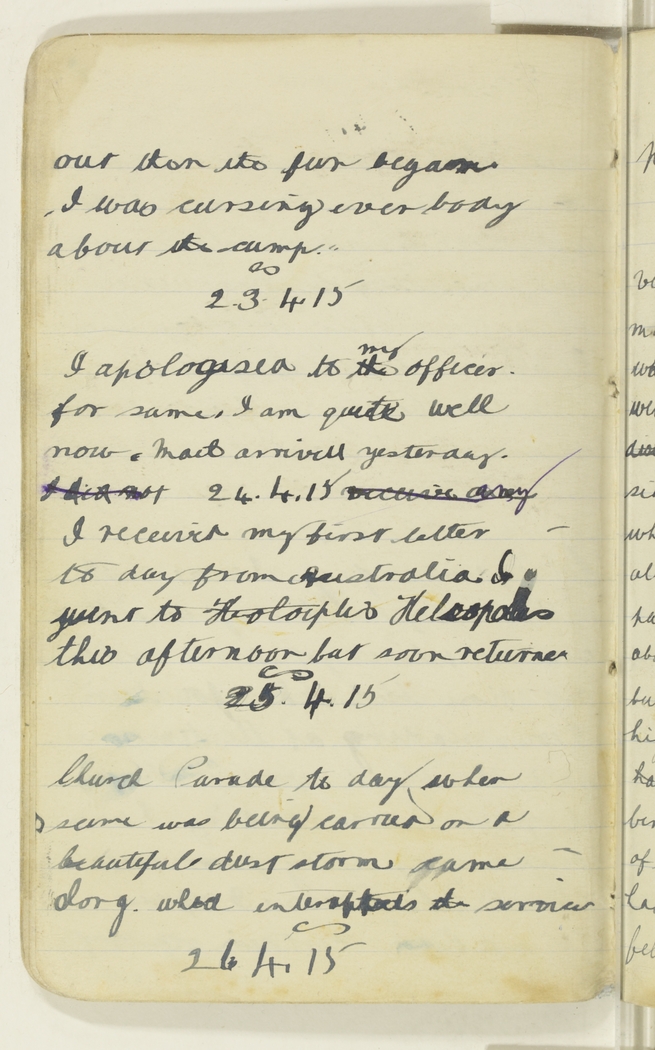 out then the fun began
I was cursing ever body
about the camp.
23.4.15
I apologised to the my officer.
for same. I am quite well
now. Mail arrived yesterday.
I did not 24.4.15 receive any
I received my first letter
to day from Australia I
went to Heloiplis Heleopolis
this afternoon but soon returned
25.4.15
Church Parade to day when
same was being carried on a
beautiful dust storm came
along. which interrupted the service
26 4.15